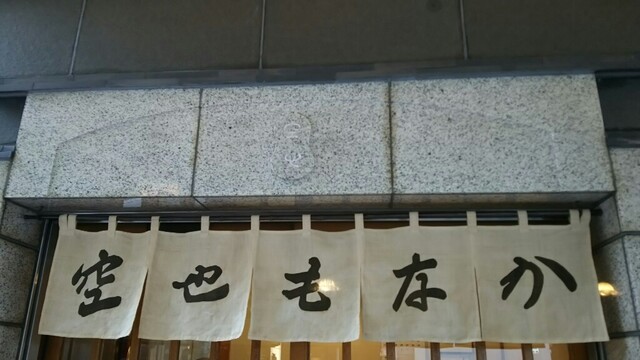 空也もなか